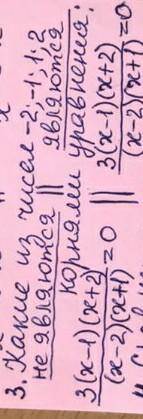 3. Какие из чисел -2; -1; 1; 2
не являются || являются
корнями уравнения:
3(x-1)(x+2)/(x-2)(x+1) = 0 || 3(x-1)(x+2)/(x-2)(x+1) = 0